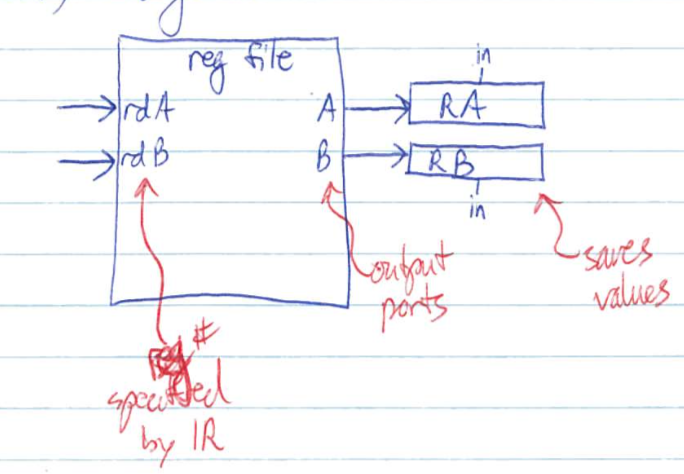 reg file
in
rdA
A
RA
rdB
B
RB
in
output
ports
saves
values
reg #
specified
by IR